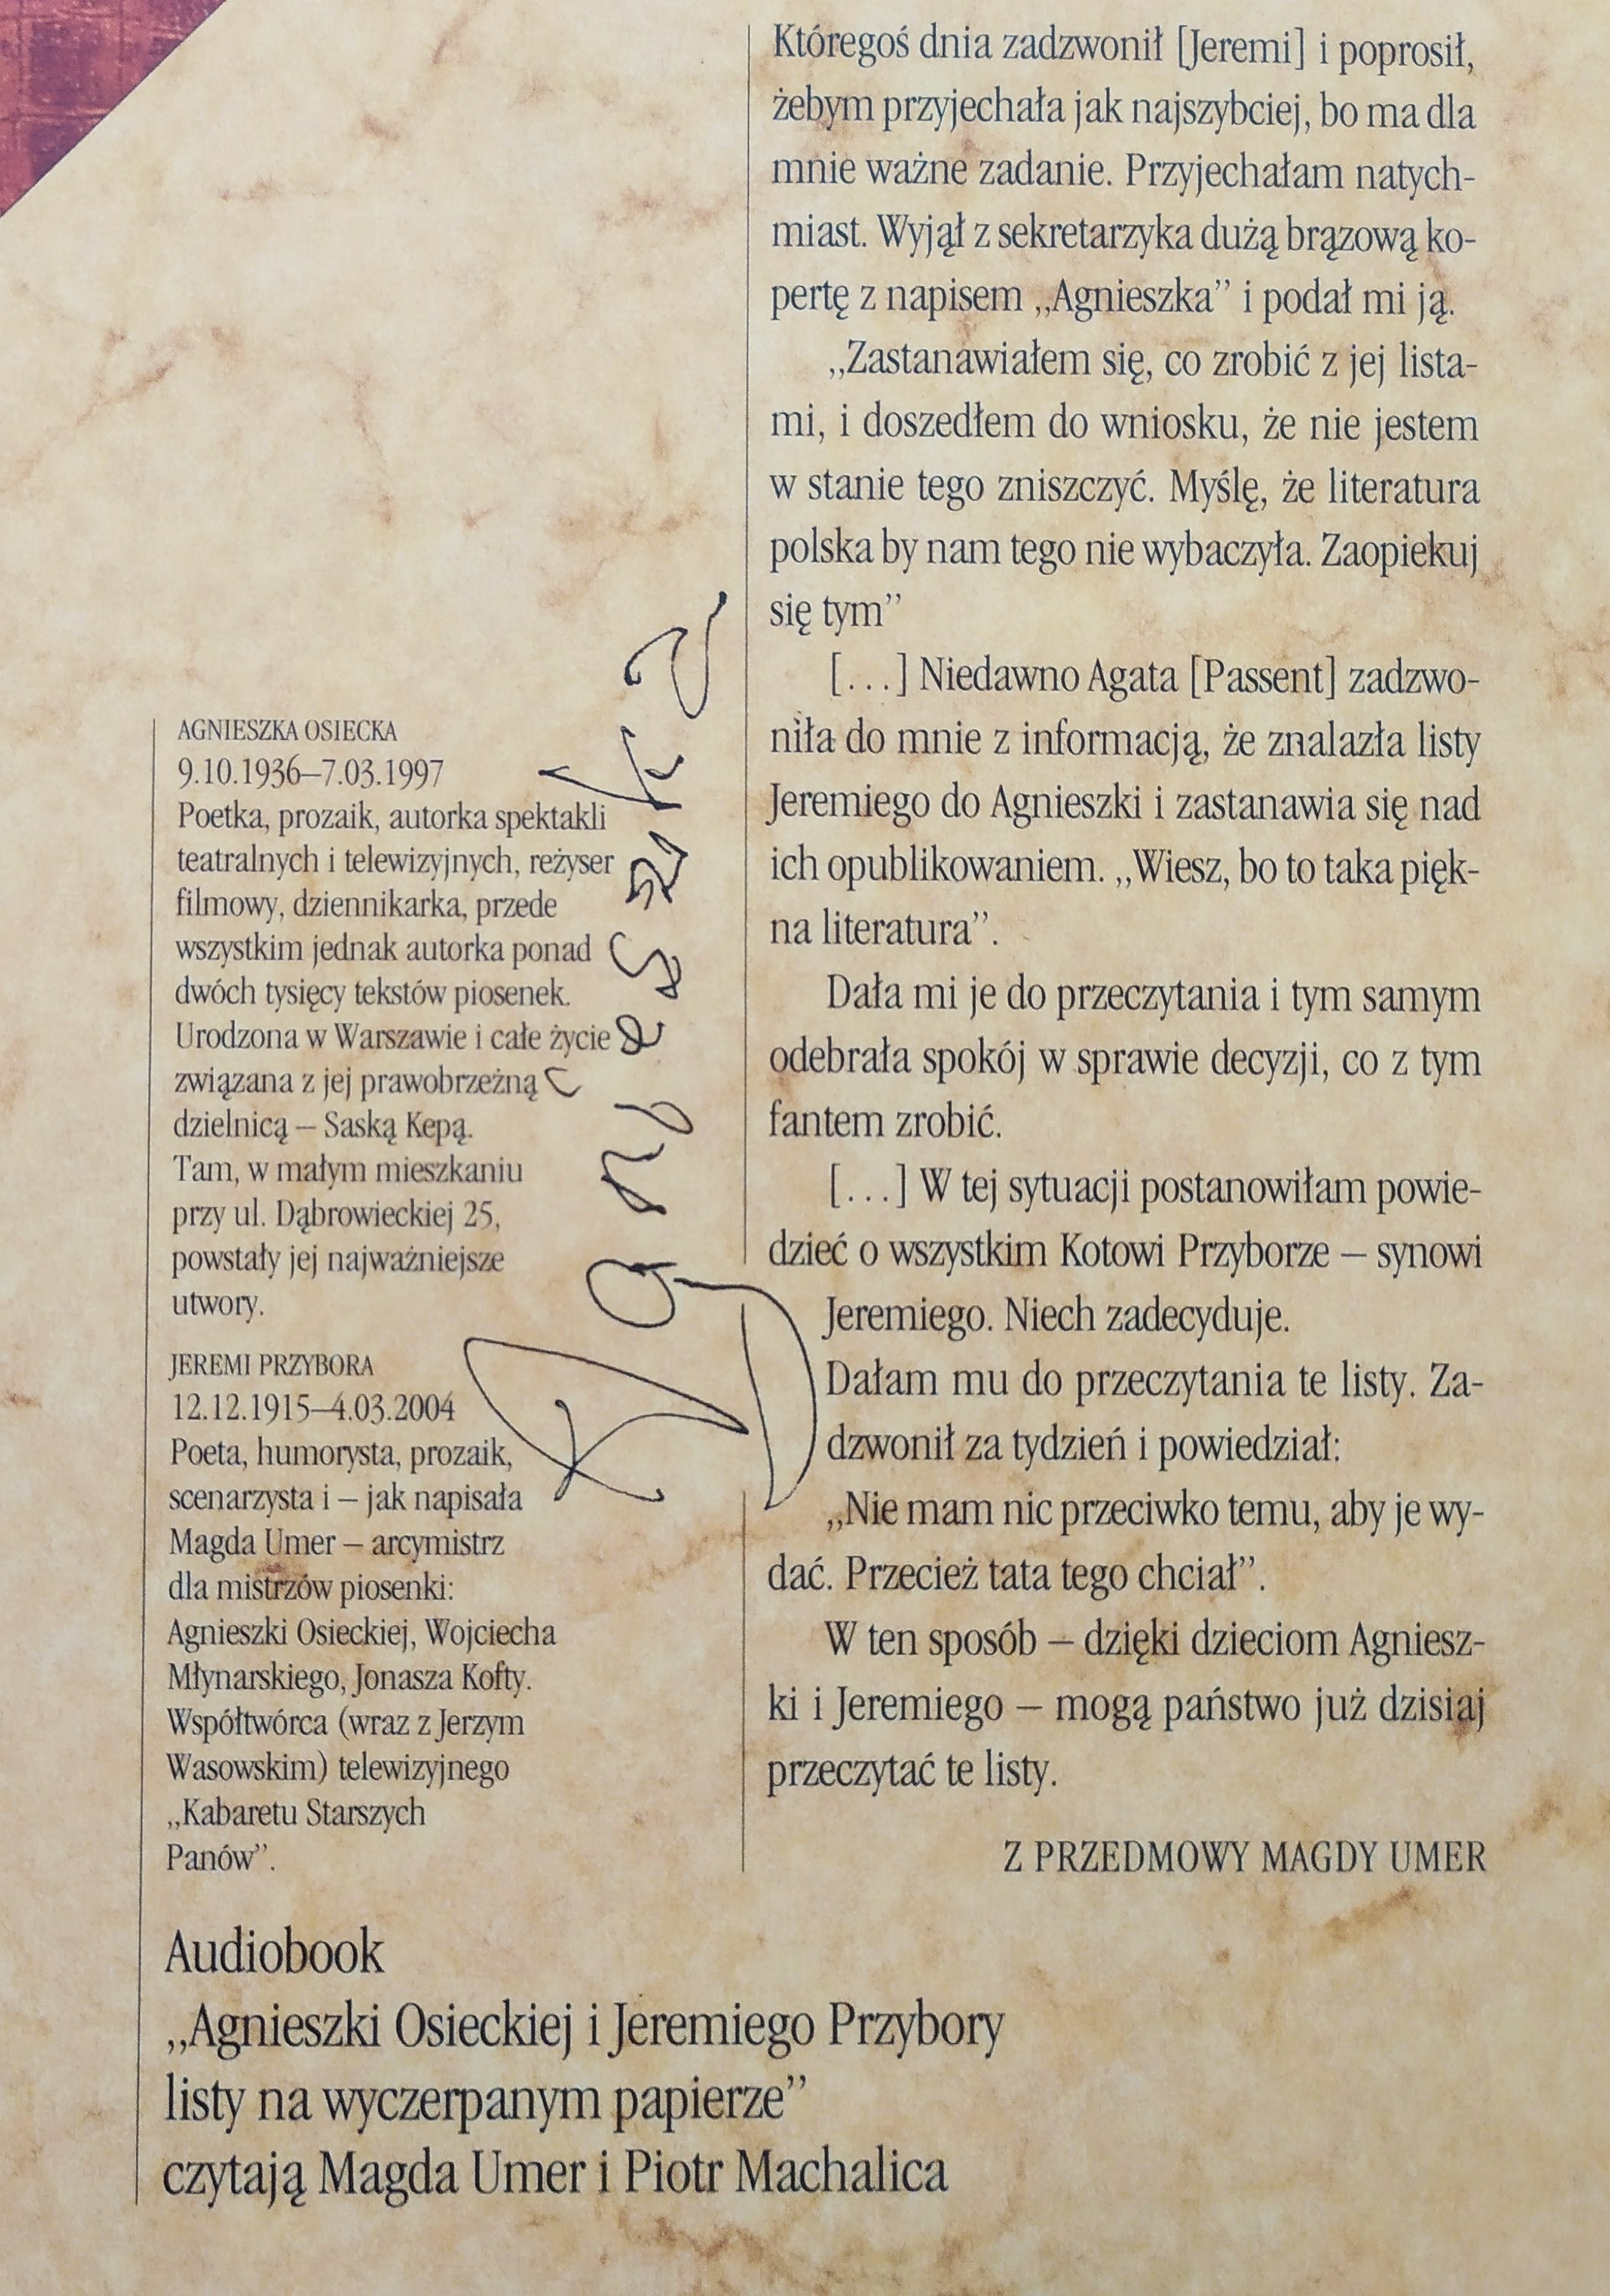 Któregoś dnia zadzwonił [Jeremi] i poprosił,
żebym przyjechała jak najszybciej, bo ma dla
mnie ważne zadanie. Przyjechałam natych-
miast. Wyjął z sekretarzyka dużą brązową ko-
pertę z napisem „Agnieszka” i podał mi ją.
„Zastanawiałem się, co zrobić z jej lista-
mi, i doszedłem do wniosku, że nie jestem
w stanie tego zniszczyć. Myślę, że literatura
polska by nam tego nie wybaczyła. Zaopiekuj
się tym”
[…] Niedawno Agata [Passent] zadzwo-
niła do mnie z informacją, że znalazła listy
Jeremiego do Agnieszki i zastanawia się nad
ich opublikowaniem. „Wiesz, bo to taka pięk-
na literatura”.
Dała mi je do przeczytania i tym samym
odebrała spokój w sprawie decyzji, co z tym
fantem zrobić.
[…] W tej sytuacji postanowiłam powie-
dzieć o wszystkim Kotowi Przyborze – synowi
Jeremiego. Niech zadecyduje.
Dałam mu do przeczytania te listy. Za-
dzwonił za tydzień i powiedział:
„Nie mam nic przeciwko temu, aby je wy-
dać. Przecież tata tego chciał”.
W ten sposób – dzięki dzieciom Agniesz-
ki i Jeremiego – mogą państwo już dzisiaj
przeczytać te listy.
Z PRZEDMOWY MAGDY UMER
AGNIESZKA OSIECKA
9.10.1936–7.03.1997
Poetka, prozaik, autorka spektakli
teatralnych i telewizyjnych, reżyser
filmowy, dziennikarka, przede
wszystkim jednak autorka ponad
dwóch tysięcy tekstów piosenek.
Urodzona w Warszawie i całe życie
związana z jej prawobrzeżną
dzielnicą – Saską Kepą.
Tam, w małym mieszkaniu
przy ul. Dąbrowieckiej 25,
powstały jej najważniejsze
utwory.
JEREMI PRZYBORA
12.12.1915–4.03.2004
Poeta, humorysta, prozaik,
scenarzysta i – jak napisała
Magda Umer – arcymistrz
dla mistrzów piosenki:
Agnieszki Osieckiej, Wojciecha
Młynarskiego, Jonasza Kofty.
Współtwórca (wraz z Jerzym
Wasowskim) telewizyjnego
„Kabaretu Starszych
Panów”.
Agnieszka
Audiobook
„Agnieszki Osieckiej i Jeremiego Przybory
listy na wyczerpanym papierze”
czytają Magda Umer i Piotr Machalica